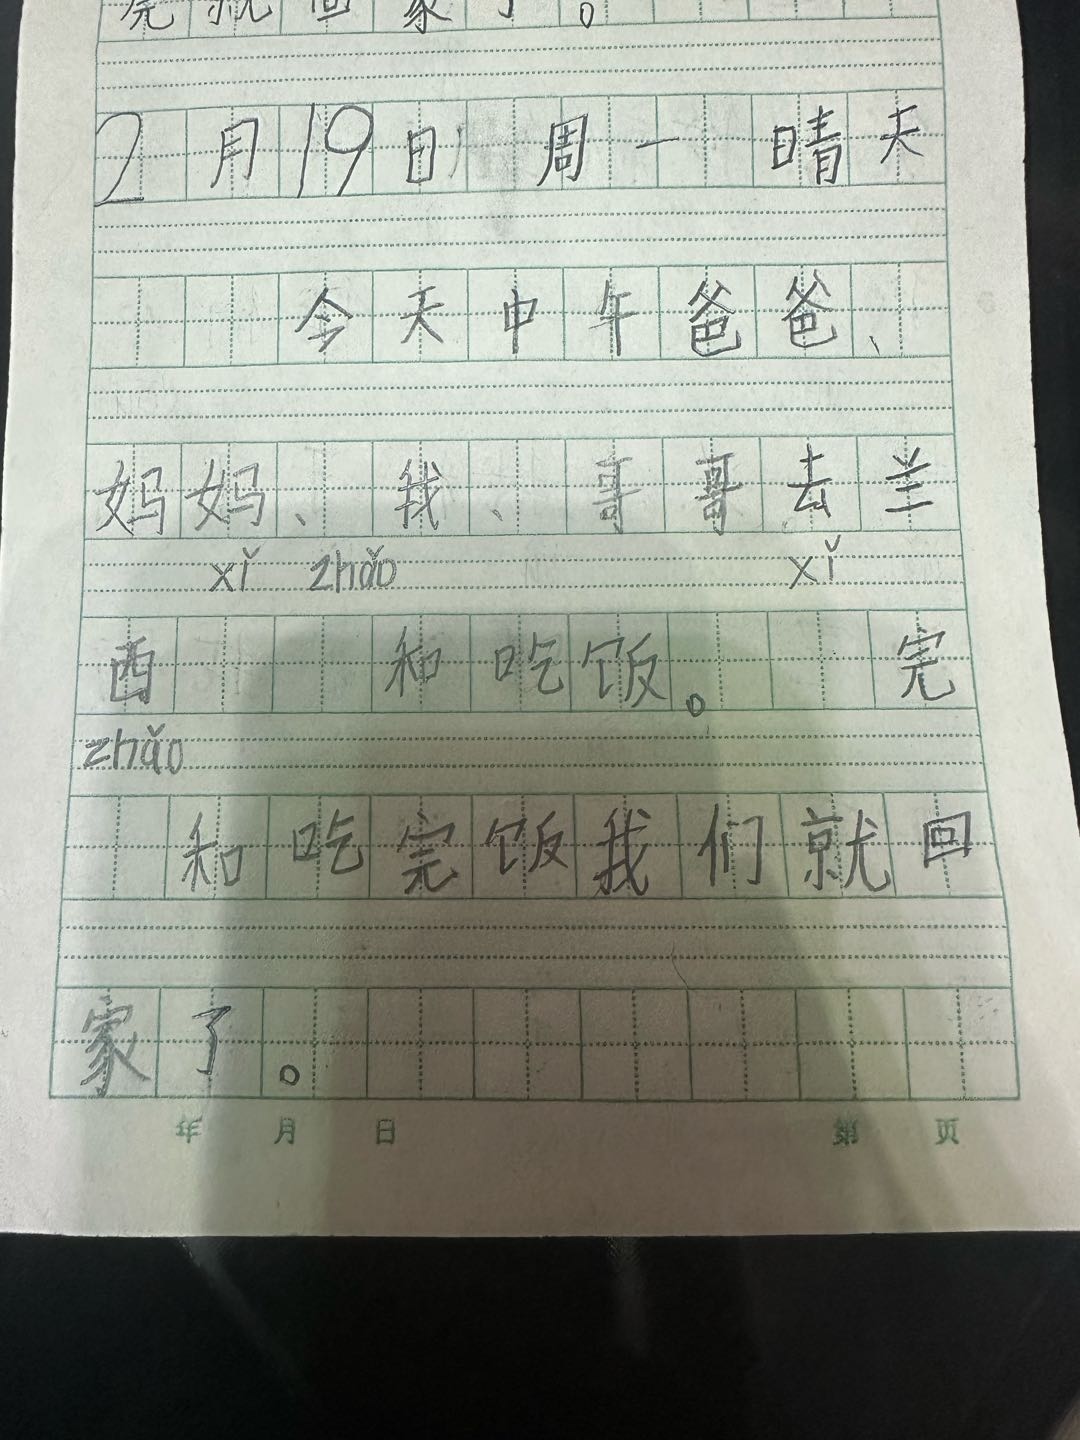 完就回家了。
2月19日 周一 晴天
今天中午爸爸、
妈妈、我、哥哥去兰
xǐ zhǎo xǐ
西 和吃饭。 完
zhǎo
和吃完饭我们就回
家了。
年 月 日 第 页